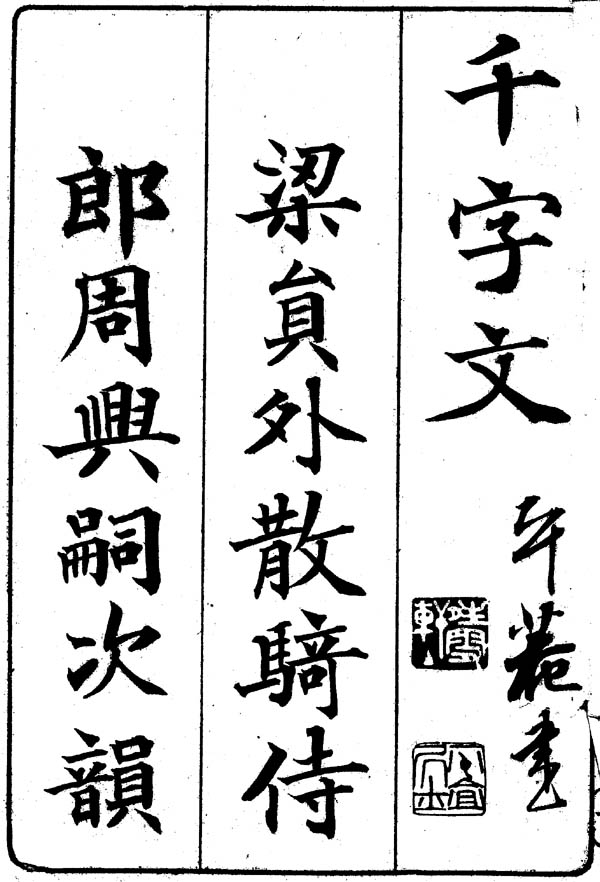 千字文
菴書
梁貟外散騎侍
郎周興嗣次韻